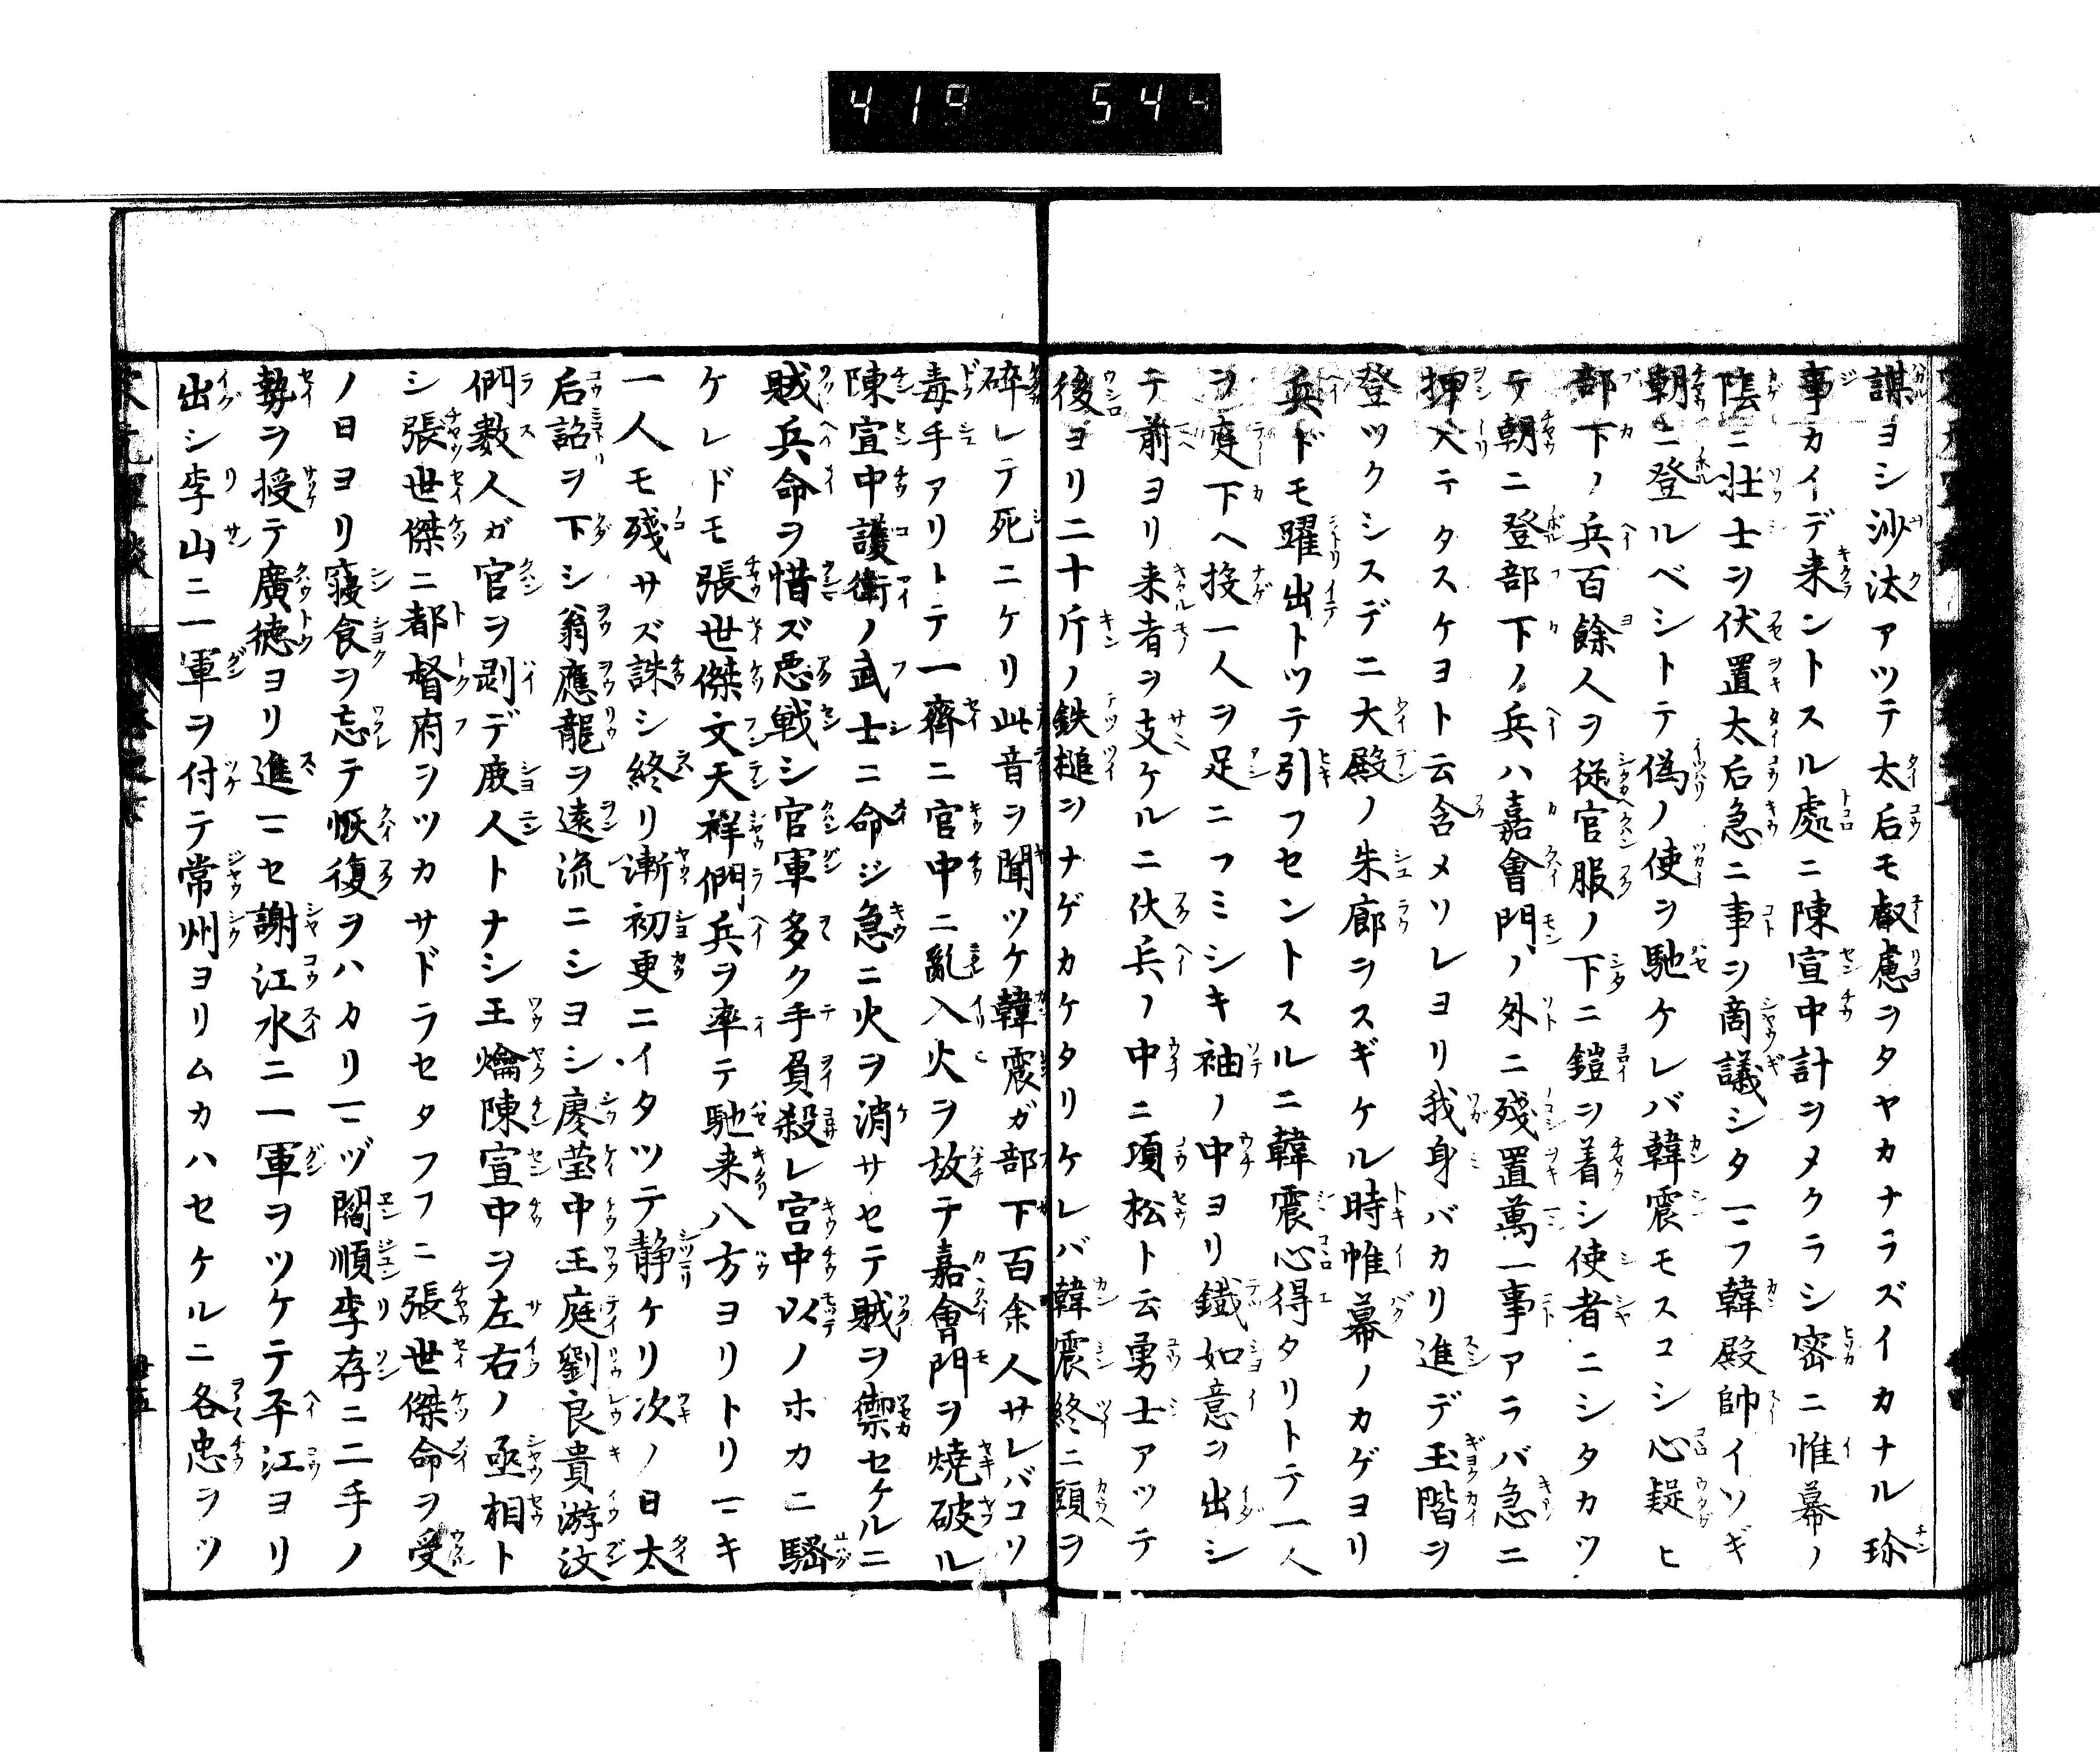 419 544
謀ヨシ沙汰アツテ太后モ叡慮ヲタヤカナラズイカナル珎
事カイデ来ントスル處ニ陳宣中計ヲメクラシ密ニ惟幕ノ
陰ニ壮士ヲ伏置太后急ニ事ヲ商議シタマフ韓殿帥イソギ
朝ニ登ルベシトテ偽ノ使ヲ馳ケレバ韓震モスコシ心疑ヒ
部下ノ兵百餘人ヲ從官服ノ下ニ鎧ヲ着シ使者ニシタカツ
テ朝ニ登部下ノ兵ハ嘉會門ノ外ニ殘置萬一事アラバ急ニ
押入テタスケヨト云含メソレヨリ我身バカリ進デ玉階ヲ
登ツクシスデニ大殿ノ朱廊ヲスギケル時帷幕ノカゲヨリ
兵ドモ躍出トツテ引フセントスルニ韓震心得タリトテ一人
ヲ廳下ヘ投一人ヲ足ニフミシキ袖ノ中ヨリ鐵如意ヲ出シ
テ前ヨリ来者ヲ支ケルニ伏兵ノ中ニ項松ト云勇士アツテ
後ヨリ二十斤ノ鉄槌ヲナゲカケタリケレバ韓震終ニ頭ヲ
碎レテ死ニケリ此音ヲ聞ツケ韓震ガ部下百余人サレバコソ
毒手アリトテ一齊ニ官中ニ亂入火ヲ放テ嘉會門ヲ燒破ル
陳宣中護衛ノ武士ニ命ジ急ニ火ヲ消サセテ賊ヲ禦セケルニ
賊兵命ヲ惜ズ悪戦シ官軍多ク手負殺レ宮中以ノホカニ騒
ケレドモ張世傑文天祥們兵ヲ率テ馳来八方ヨリトリマキ
一人モ殘サズ誅シ終リ漸初更ニイタツテ静ケリ次ノ日太
后詔ヲ下シ翁應龍ヲ遠流ニシヨシ廖瑩中王庭劉良貴游汶
們數人ガ官ヲ剥デ庶人トナシ王爚陳宣中ヲ左右ノ丞相ト
シ張世傑ニ都督府ヲツカサドラセタマフニ張世傑命ヲ受
ノ日ヨリ寝食ヲ忘テ恢復ヲハカリマヅ閻順李存ニ二手ノ
勢ヲ授テ廣徳ヨリ進マセ謝江水ニ一軍ヲツケテ平江ヨリ
出シ李山ニ一軍ヲ付テ常州ヨリムカハセケルニ各忠ヲツ